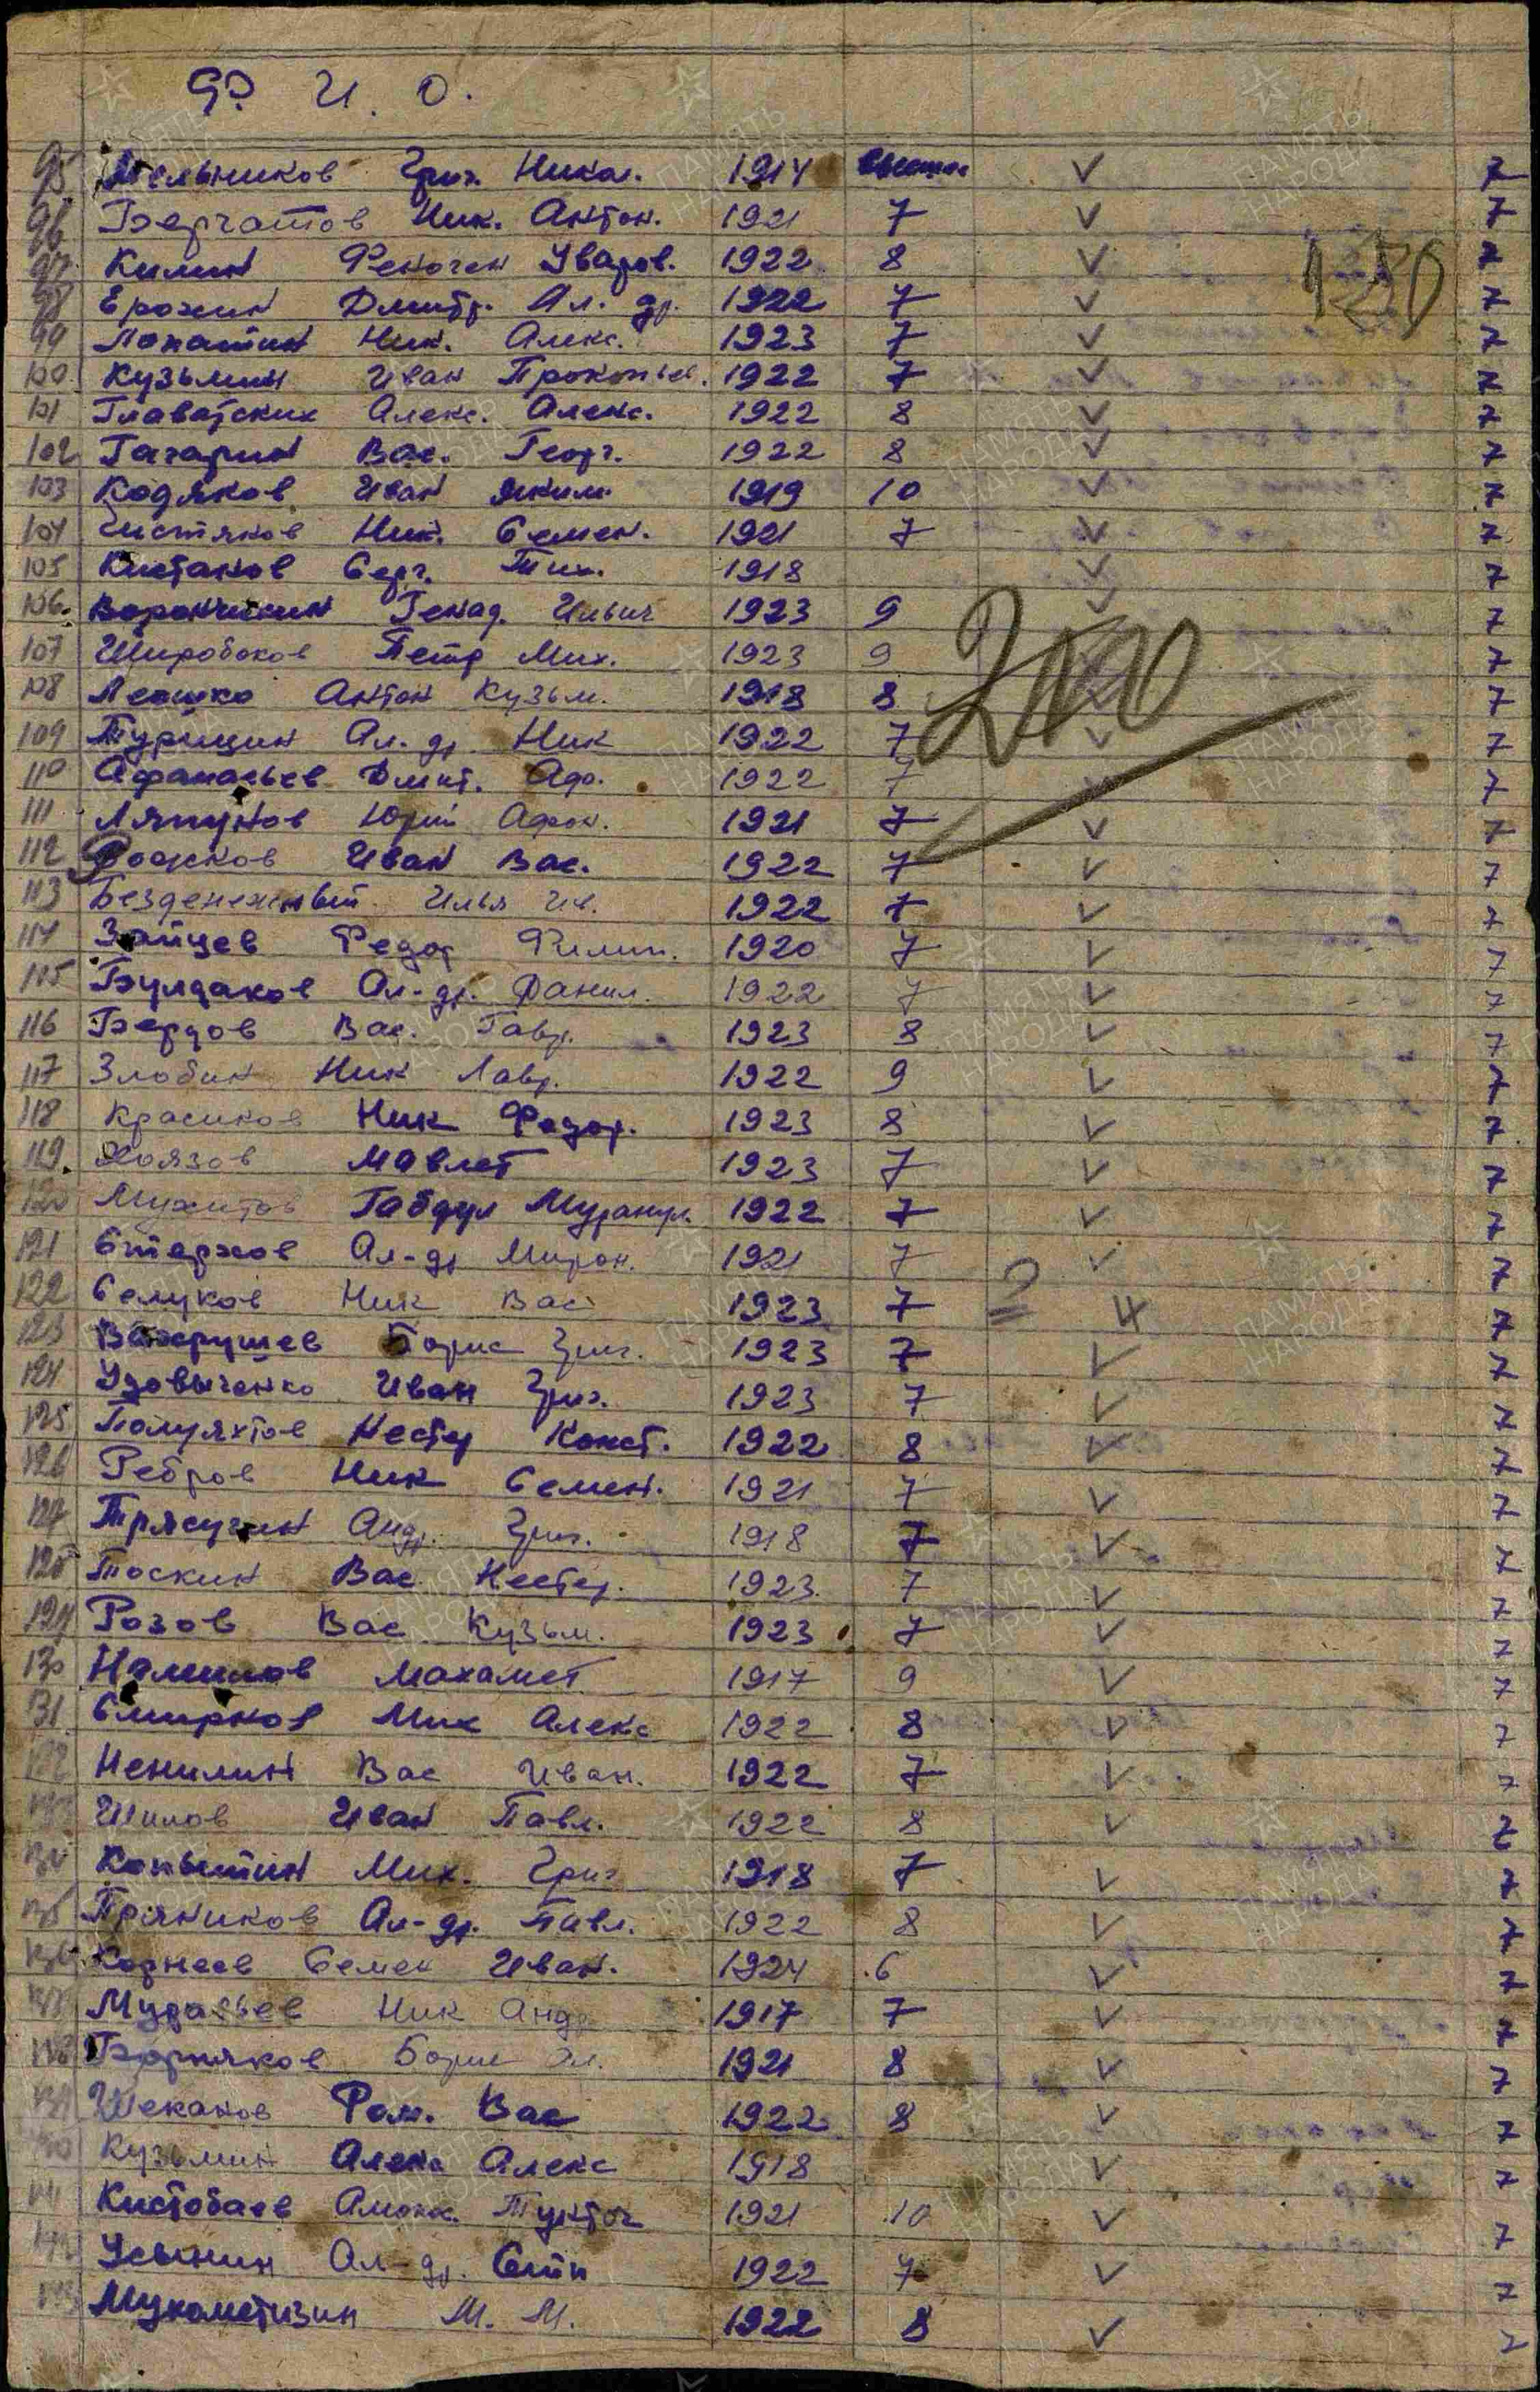 Ф. И. О.
95 Мельников Григ. Никол. 1914 высшее V 7
96 Берчатов Ник. Антон. 1921 7 V 7
97 Килин Феноген Уваров. 1922 8 V 7
98 Ерохин Дмитр. Ал. др. 1922 7 V 7
99 Лопатин Ник. Алекс. 1923 7 V 7
100 Кузьмин Иван Прокопьев. 1922 7 V 7
101 Главатских Алекс. Алекс. 1922 8 V 7
102 Гагарин Вас. Георг. 1922 8 V 7
103 Кодяков Иван Яким. 1919 10 V 7
104 Чистяков Ник. Семен. 1921 7 V 7
105 Кистанов Серг. Тих. 1918 V 7
106. Воронchихин Генад. Ильич 1923 9 V 7
107 Широбоков Петр Мих. 1923 9 7
108 Леошко Антон Кузьм. 1918 8 7
109 Турицин Ал. др. Ник 1922 7 V 7
110 Афанасьев Дмит. Афо. 1922 7 V 7
111 Ляпунов Юрий Афон. 1921 7 V 7
112 Рожков Иван Вас. 1922 7 V 7
113 Безденежный Илья Ив. 1922 7 V 7
114 Зайцев Федор Филип. 1920 7 V 7
115 Булдаков Ал-др. Данил. 1922 7 V 7
116 Бердов Вас. Гавр. 1923 8 V 7
117 Злобин Ник Лавр. 1922 9 V 7
118 Красиков Ник Федор. 1923 8 V 7
119. Хоязов Мавлет 1923 7 V 7
120 Мухитов Габдул 1922 7 V 7
121 Стерхов Ал-др Мирон. 1921 7 V 7
122 Селуков Ник Вас 1923 7 4 7
123 Вахрушев Борис Григ. 1923 7 V 7
124 Удовыченко Иван Григ. 1923 7 V 7
125 Полуяхтов Нестер Конст. 1922 8 V 7
126 Ребров Ник Семен. 1921 7 V 7
127 Трясучин Андр. Григ. 1918 7 V 7
128 Тоскин Вас. Нестер. 1923 7 V 7
129 Розов Вас Кузьм. 1923 7 V 7
130 Махамет 1917 9 V 7
131 Смирнов Мих Алекс 1922 8 V 7
132 Ненилин Вас Иван. 1922 7 V 7
133 Шилов Иван Павл. 1922 8 V 7
134 Копытин Мих. Григ 1918 7 V 7
135 Пряников Ал-др. Павл. 1922 8 V 7
136 Корнеев Семен Иван. 1924 6 V 7
137 Муравьев Ник Андр 1917 7 V 7
138 Борняков Борис Ал. 1921 8 V 7
139 Шеканов Ром. Вас 1922 8 V 7
140 Кузьмин Алекс Алекс 1918 V 7
141 Кистобаев 1921 10 V 7
142 Усынин Ал-др. 1922 7 V 7
143 Мухометизин М. М. 1922 8 V 7